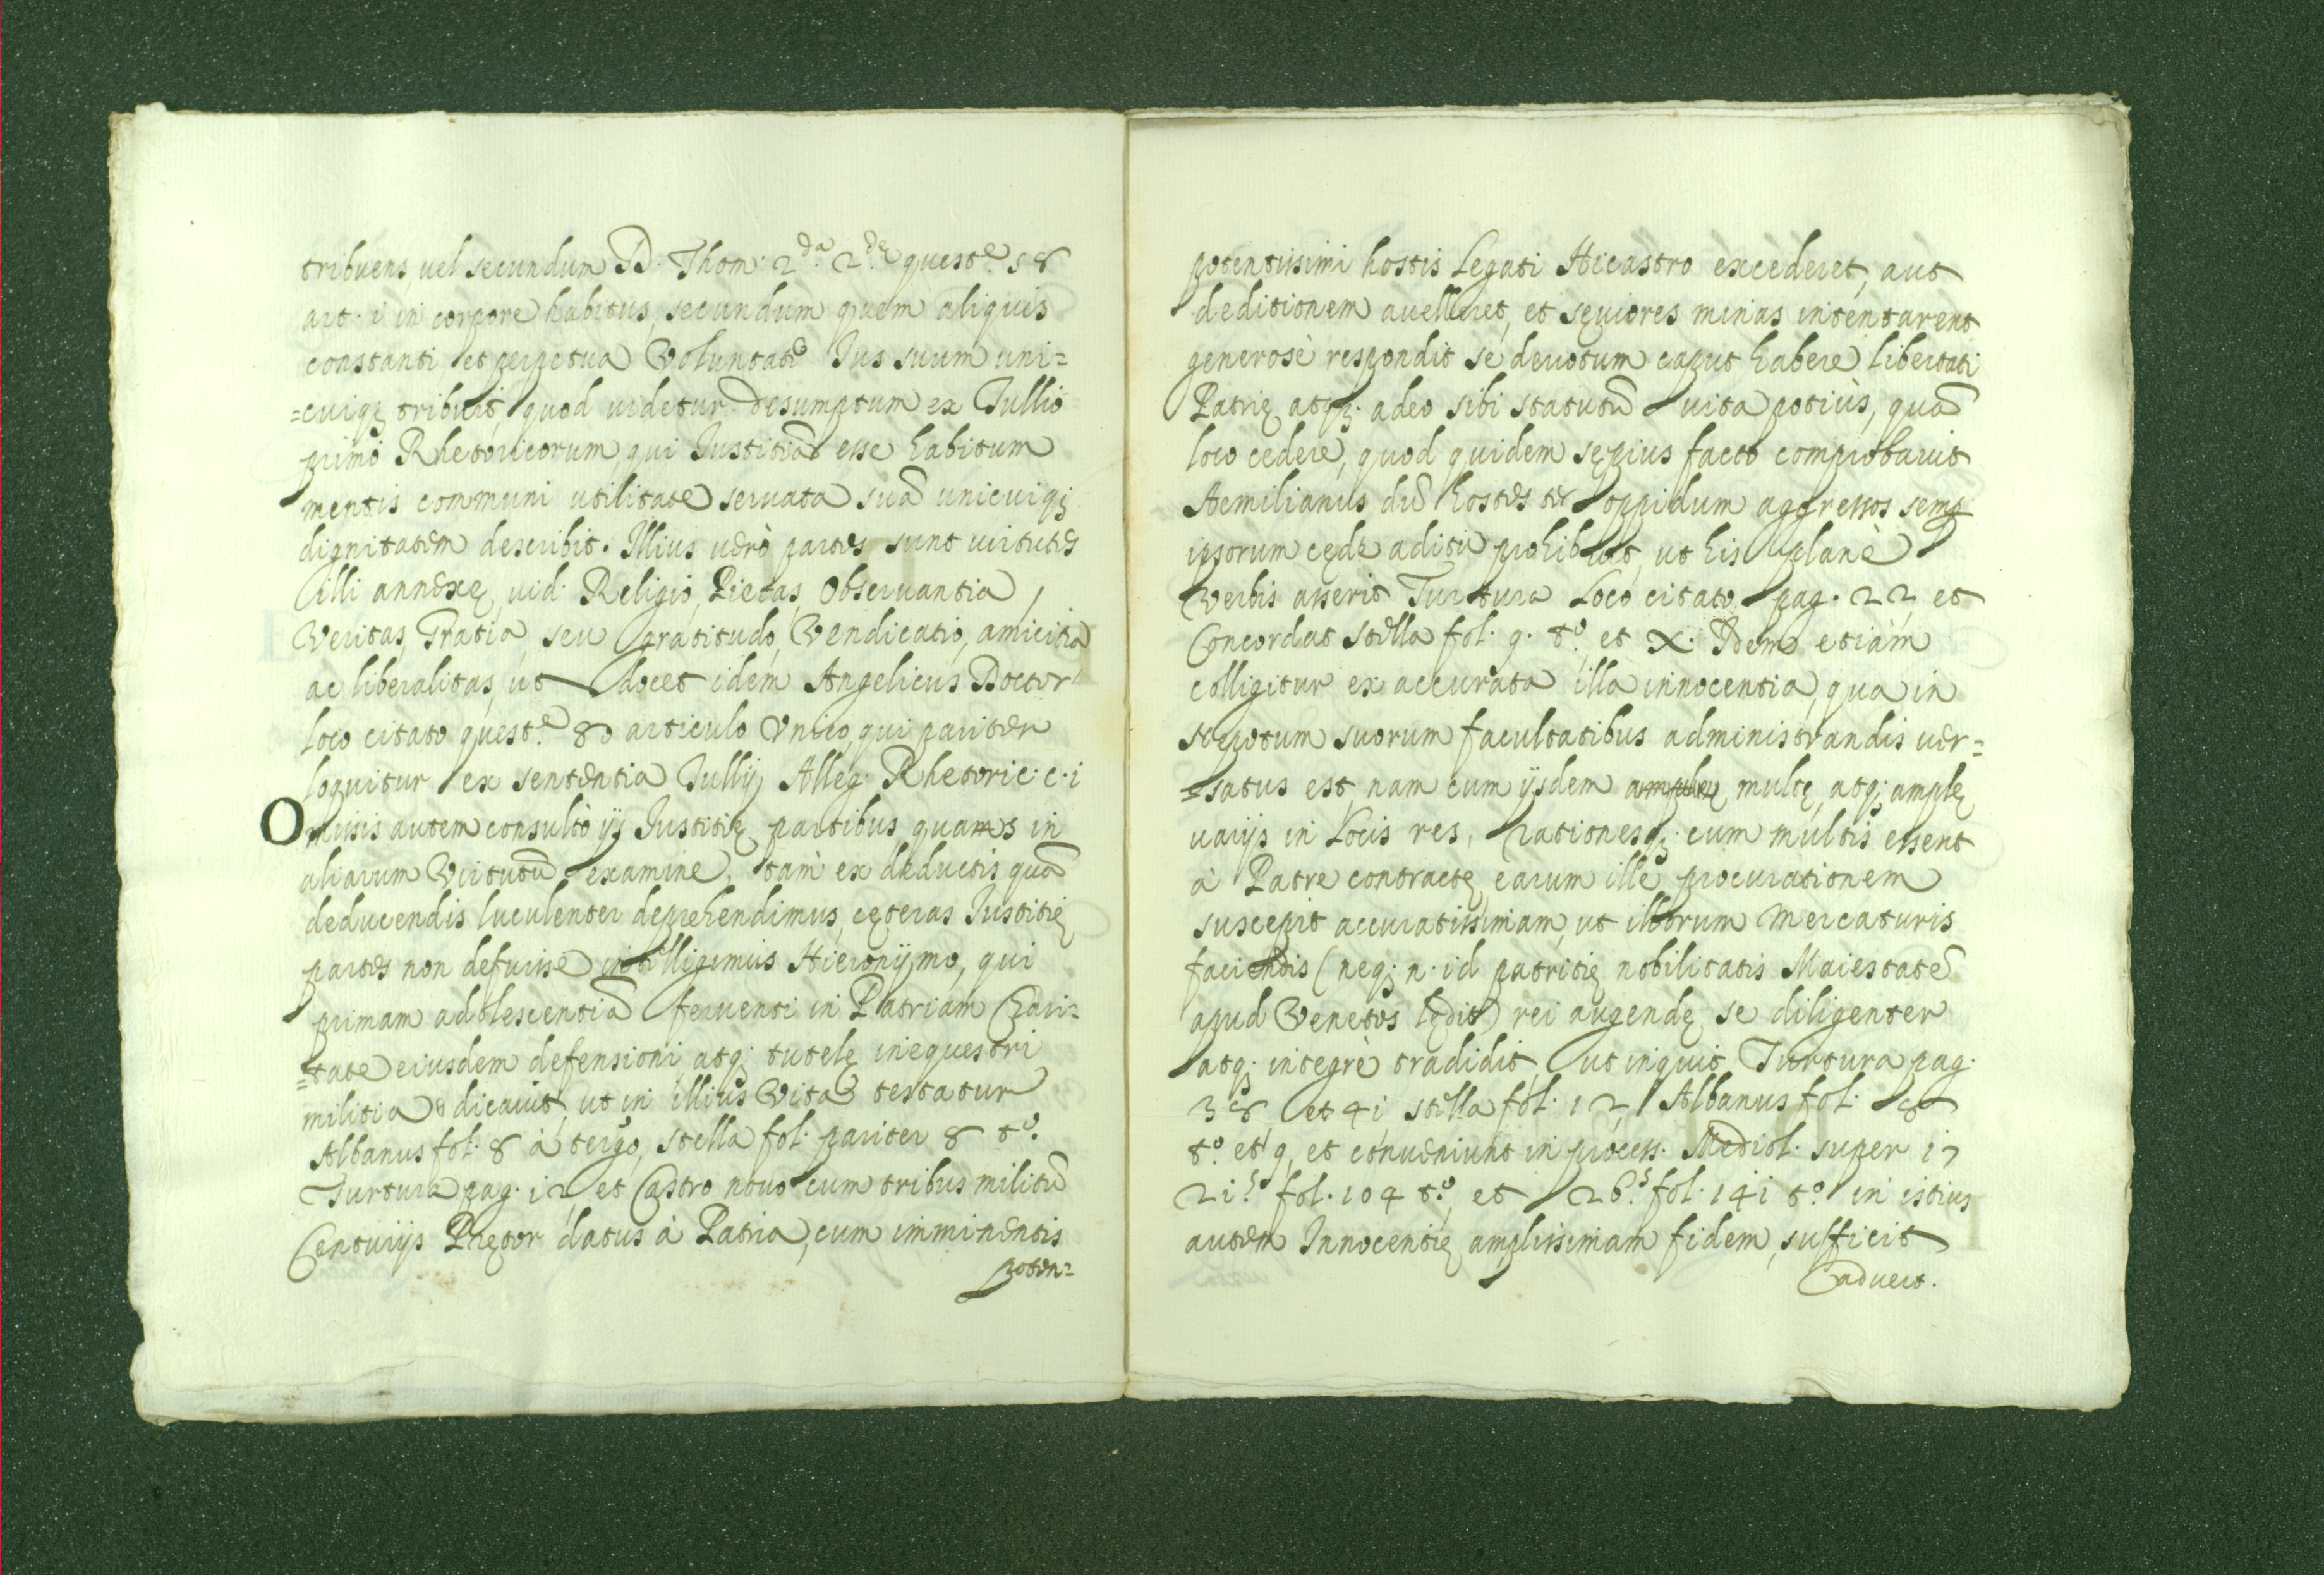 tribuens, uel secundum D. Thom. 2.da 2.dę quest.e 58
art. i in corpore habitus, secundum quem aliquis
constanti et perpetua Voluntate Ius suum uni=
=cuiqȝ tribuit, quod uidetur desumptum ex Tullio
primo Rhetoricorum, qui Iustitiā esse habitum
mentis communi utilitate seruata suā unicuiqȝ
dignitatem describit. Illius uerò partes sunt uirtutes
illi annexę, uid. Religio, Pietas, Obseruantia,
Veritas, Gratia, seu gratitudo, Vendicatio, amicitia
ac liberalitas, ut docet idem Angelicus Doctor
loco citato quest.e 80 articulo Vnico, qui pariter
loquitur ex sententia Tullij Alleg. Rhetoric. c. i
Omisis autem consultò ijs Iustitię partibus quas in
aliarum Virtutū examine, tam ex deductis quā
deducendis luculenter deprehendimus, cęteras Iustitię
partes non defuisse intelligimus Hieronijmo, qui
primam adolescentiā feruenti in Patriam Chari=
=tate eiusdem defensioni, atqȝ tutelę in equestri
militia dicauit, ut in illius Vita testatur
Albanus fol. 8 à tergo, Stella fol. pariter 8 t.o
Turtura pag. 12, et Castro nouo cum tribus militū
Centurijs Prętor datus à Patria, cum imminentis
poten=
potentissimi hostis Legati Hicastro excederet, aut
deditionem auelleret, et sęuiores minas intentarent
generosè respondit se deuotum caput habere libertati
Patrię, atqȝ adeo sibi statutū uita potiùs, quā
loco cedere, quod quidem sępius facto comprobauit
Aemilianus dū hostes ter oppidum aggressos semp
ipsorum cęde aditu prohibuit, ut his planè
Verbis asserit Turtura Loco citato pag. 22 et
Concordat Stella fol. 9. t.o, et X. Idem etiam
colligitur ex accurata illa innocentia, qua in
Nepotum suorum facultatibus administrandis uer=
=satus est, nam cum ijsdem multę, atqȝ amplę
uarijs in Locis res, rationesqȝ cum multis essent
à Patre contractę, earum ille procurationem
suscepit accuratissimam, ut illorum mercaturis
faciendis (neqȝ n. id patritię nobilitatis Maiestatē
apud Venetos lędit) rei augendę se diligenter
atqȝ integrè tradidit, ut inquit Turtura pag.
38 et 41, Stella fol. 12, Albanus fol. 8
t.o et 9, et conueniunt in process. Mediol. super 17
21.s fol. 104 t.o, et 26.s fol. 141 t.o in istius
autem Innocentię amplissimam fidem, sufficit
aduert.